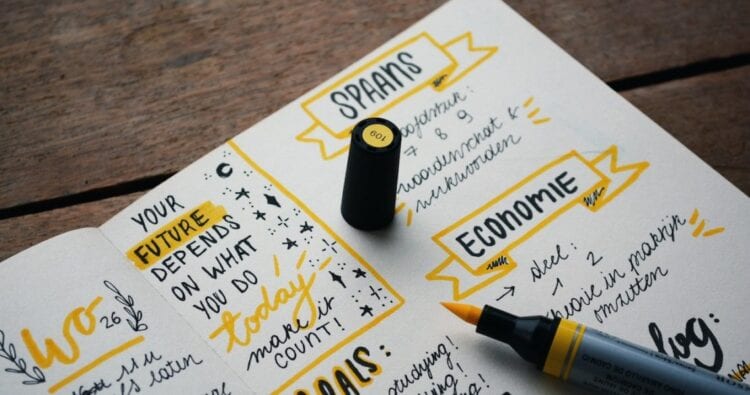 SPAANS
7 8 9
woordenschat &
werkwoorden
109
ECONOMIE
→ deel:
1 2
theorie in praktijk
omzetten
YOUR
FUTURE
DEPENDS
ON WHAT
YOU DO
today
make it
COUNT!
WO
26
11 u
les laten
studying!